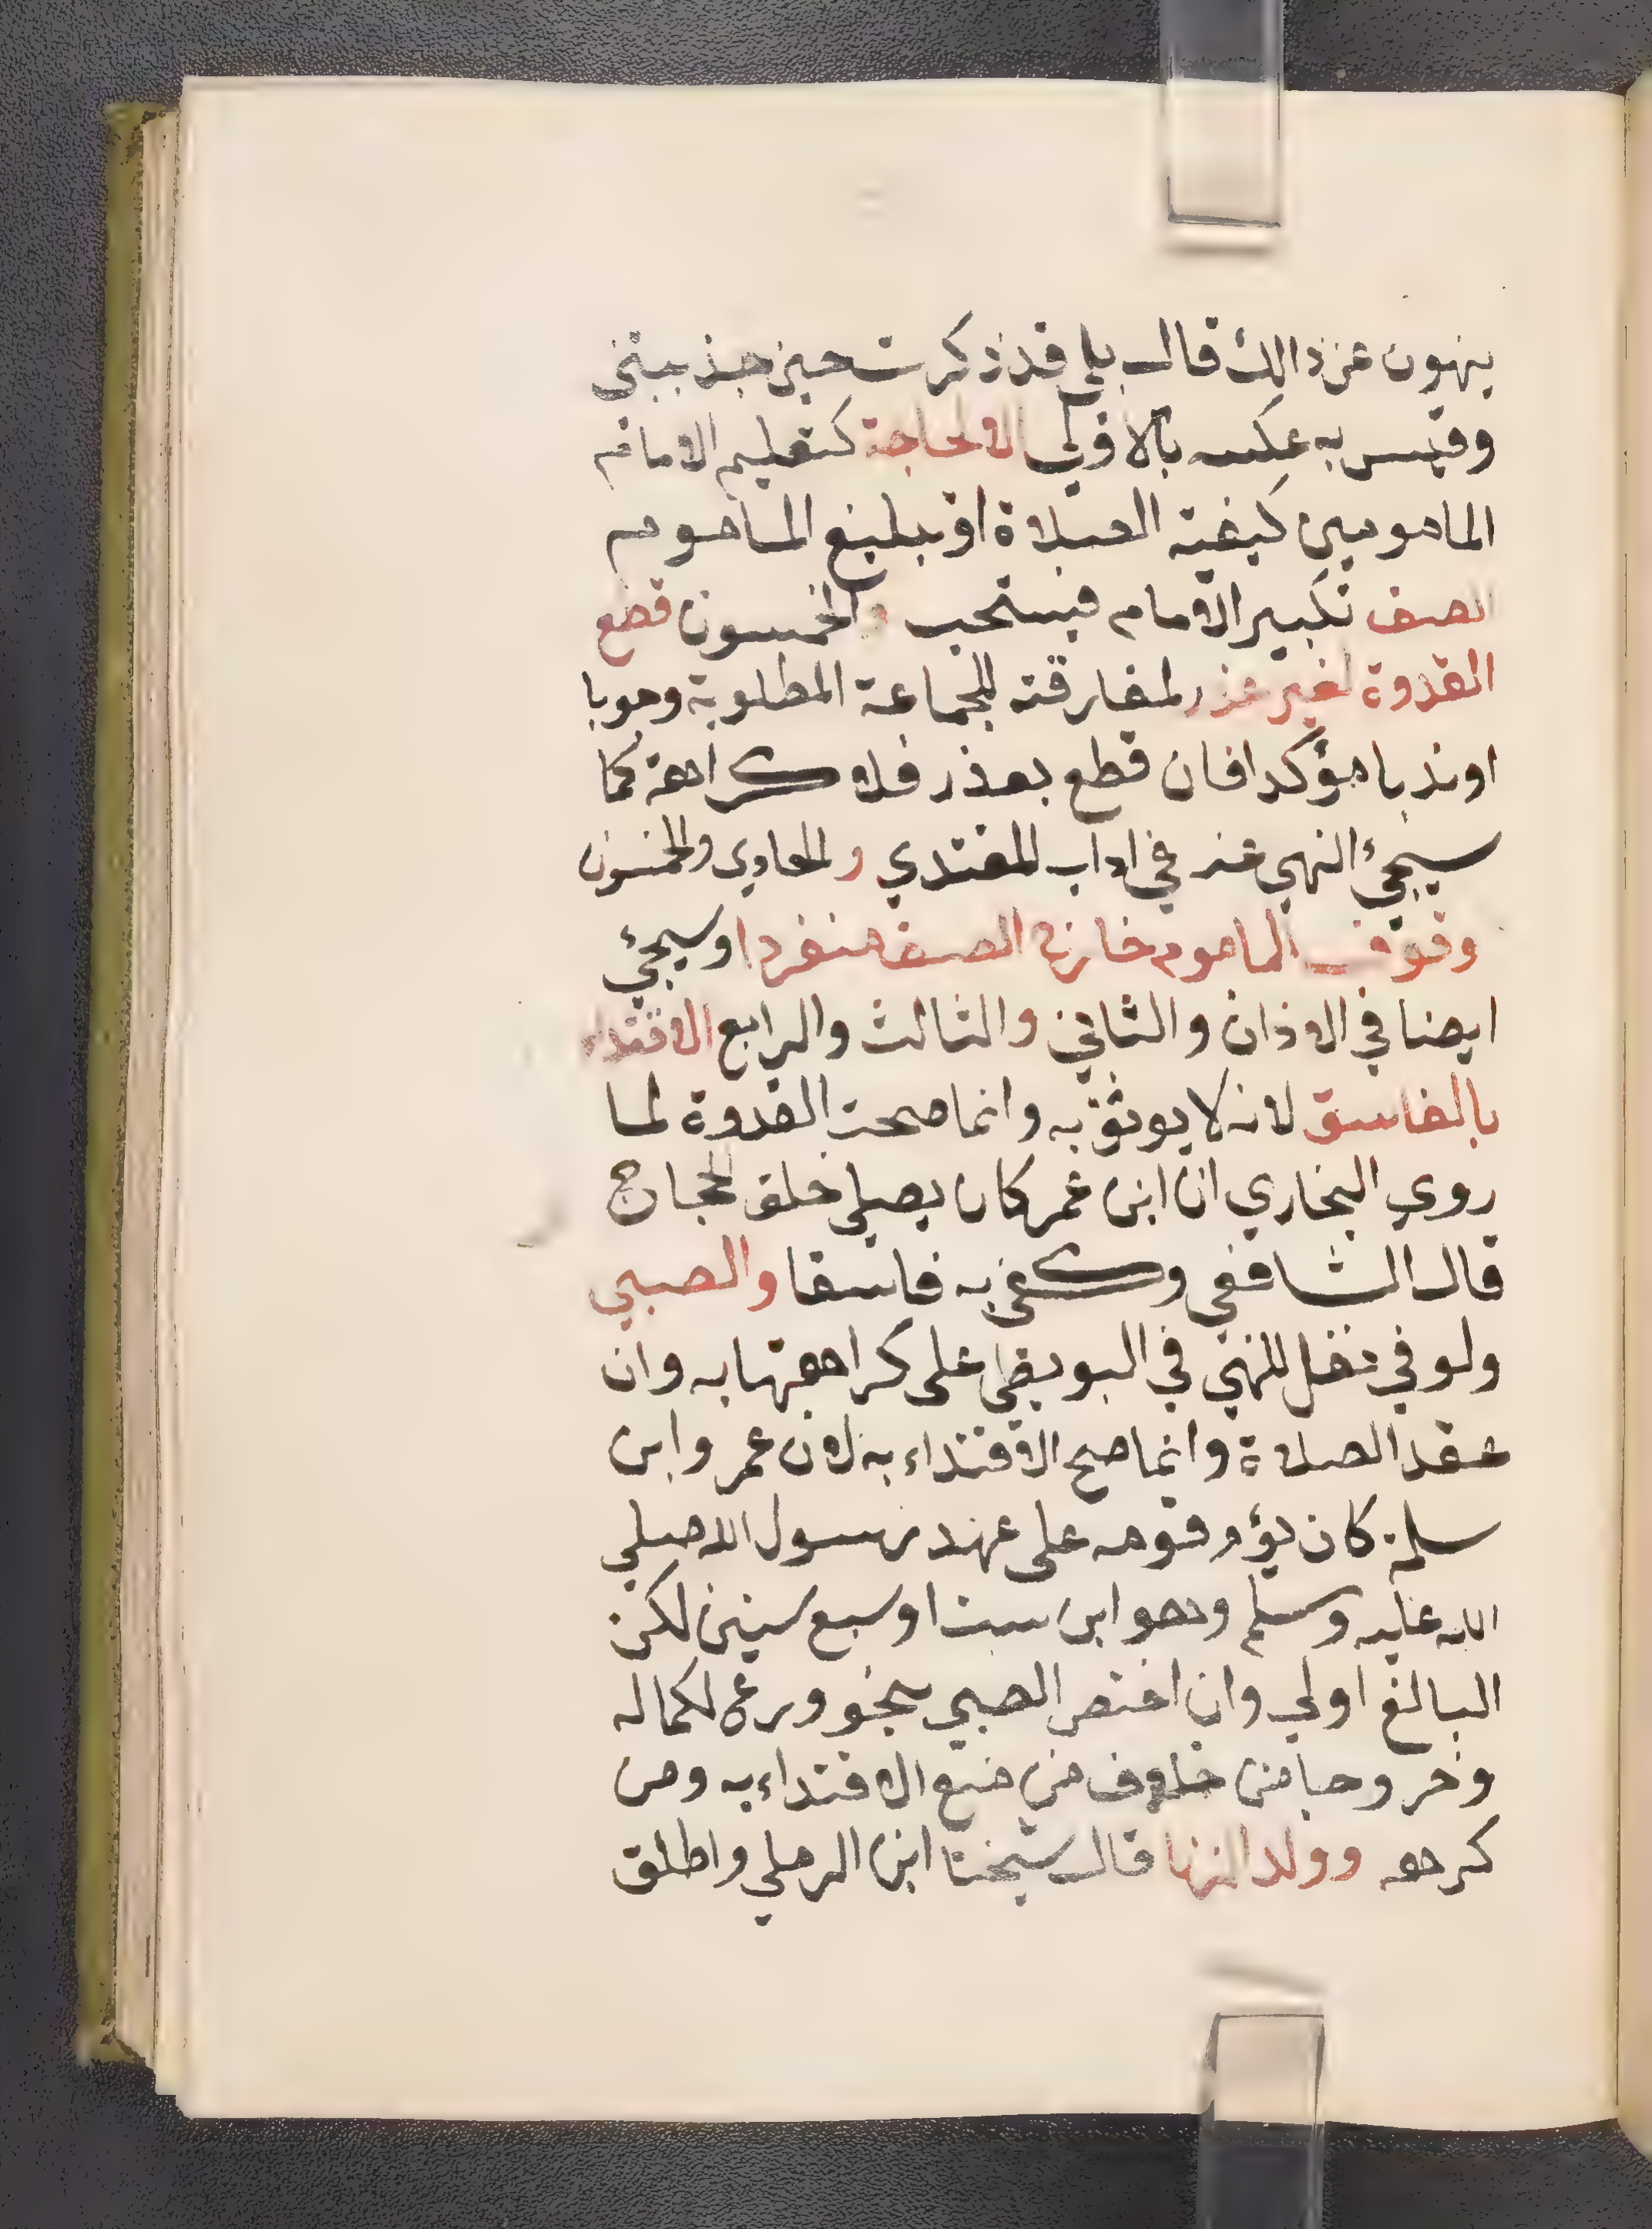 ينهون عن ذالك قال بلى قد ذكرت حين جذبتني
وقيس به عكسه بالاولى الا لحاجة كتعليم الامام
المامومين كيفية الصلاة او تبليغ الماموم
الصف تكبير الامام فيستحب والخمسون قطع
القدوة لغير عذر لمفارقته للجماعة المطلوبة وجوبا
او ندبا مؤكدا فان قطع بعذر فلا كراهة كما
سيجئ النهي عنه في اداب المقتدي والحادي والخمسون
وقوف الماموم خارج الصف منفردا وسيجئ
ايضا في الاذان والثاني والثالث والرابع الاقتداء
بالفاسق لانه لا يوثق به وانما صحت القدوة لما
روى البخاري ان ابن عمر كان يصلي خلف الحجاج
قال الشافعي وكفى به فاسقا والصبي
ولو في نفل للنهي في البويطي على كراهتها به وان
عقد الصلاة وانما صح الاقتداء به لان عمر وابن
سلمة كان يؤم قومه على عهد رسول الله صلى
الله عليه وسلم وهو ابن ست او سبع سنين لكن
البالغ اولى وان اختص الصبي بنحو ورع لكماله
وخروجا من خلاف من منع الاقتداء به ومن
كرهه وولد الزنا قال شيخنا ابن الرملي واطلق